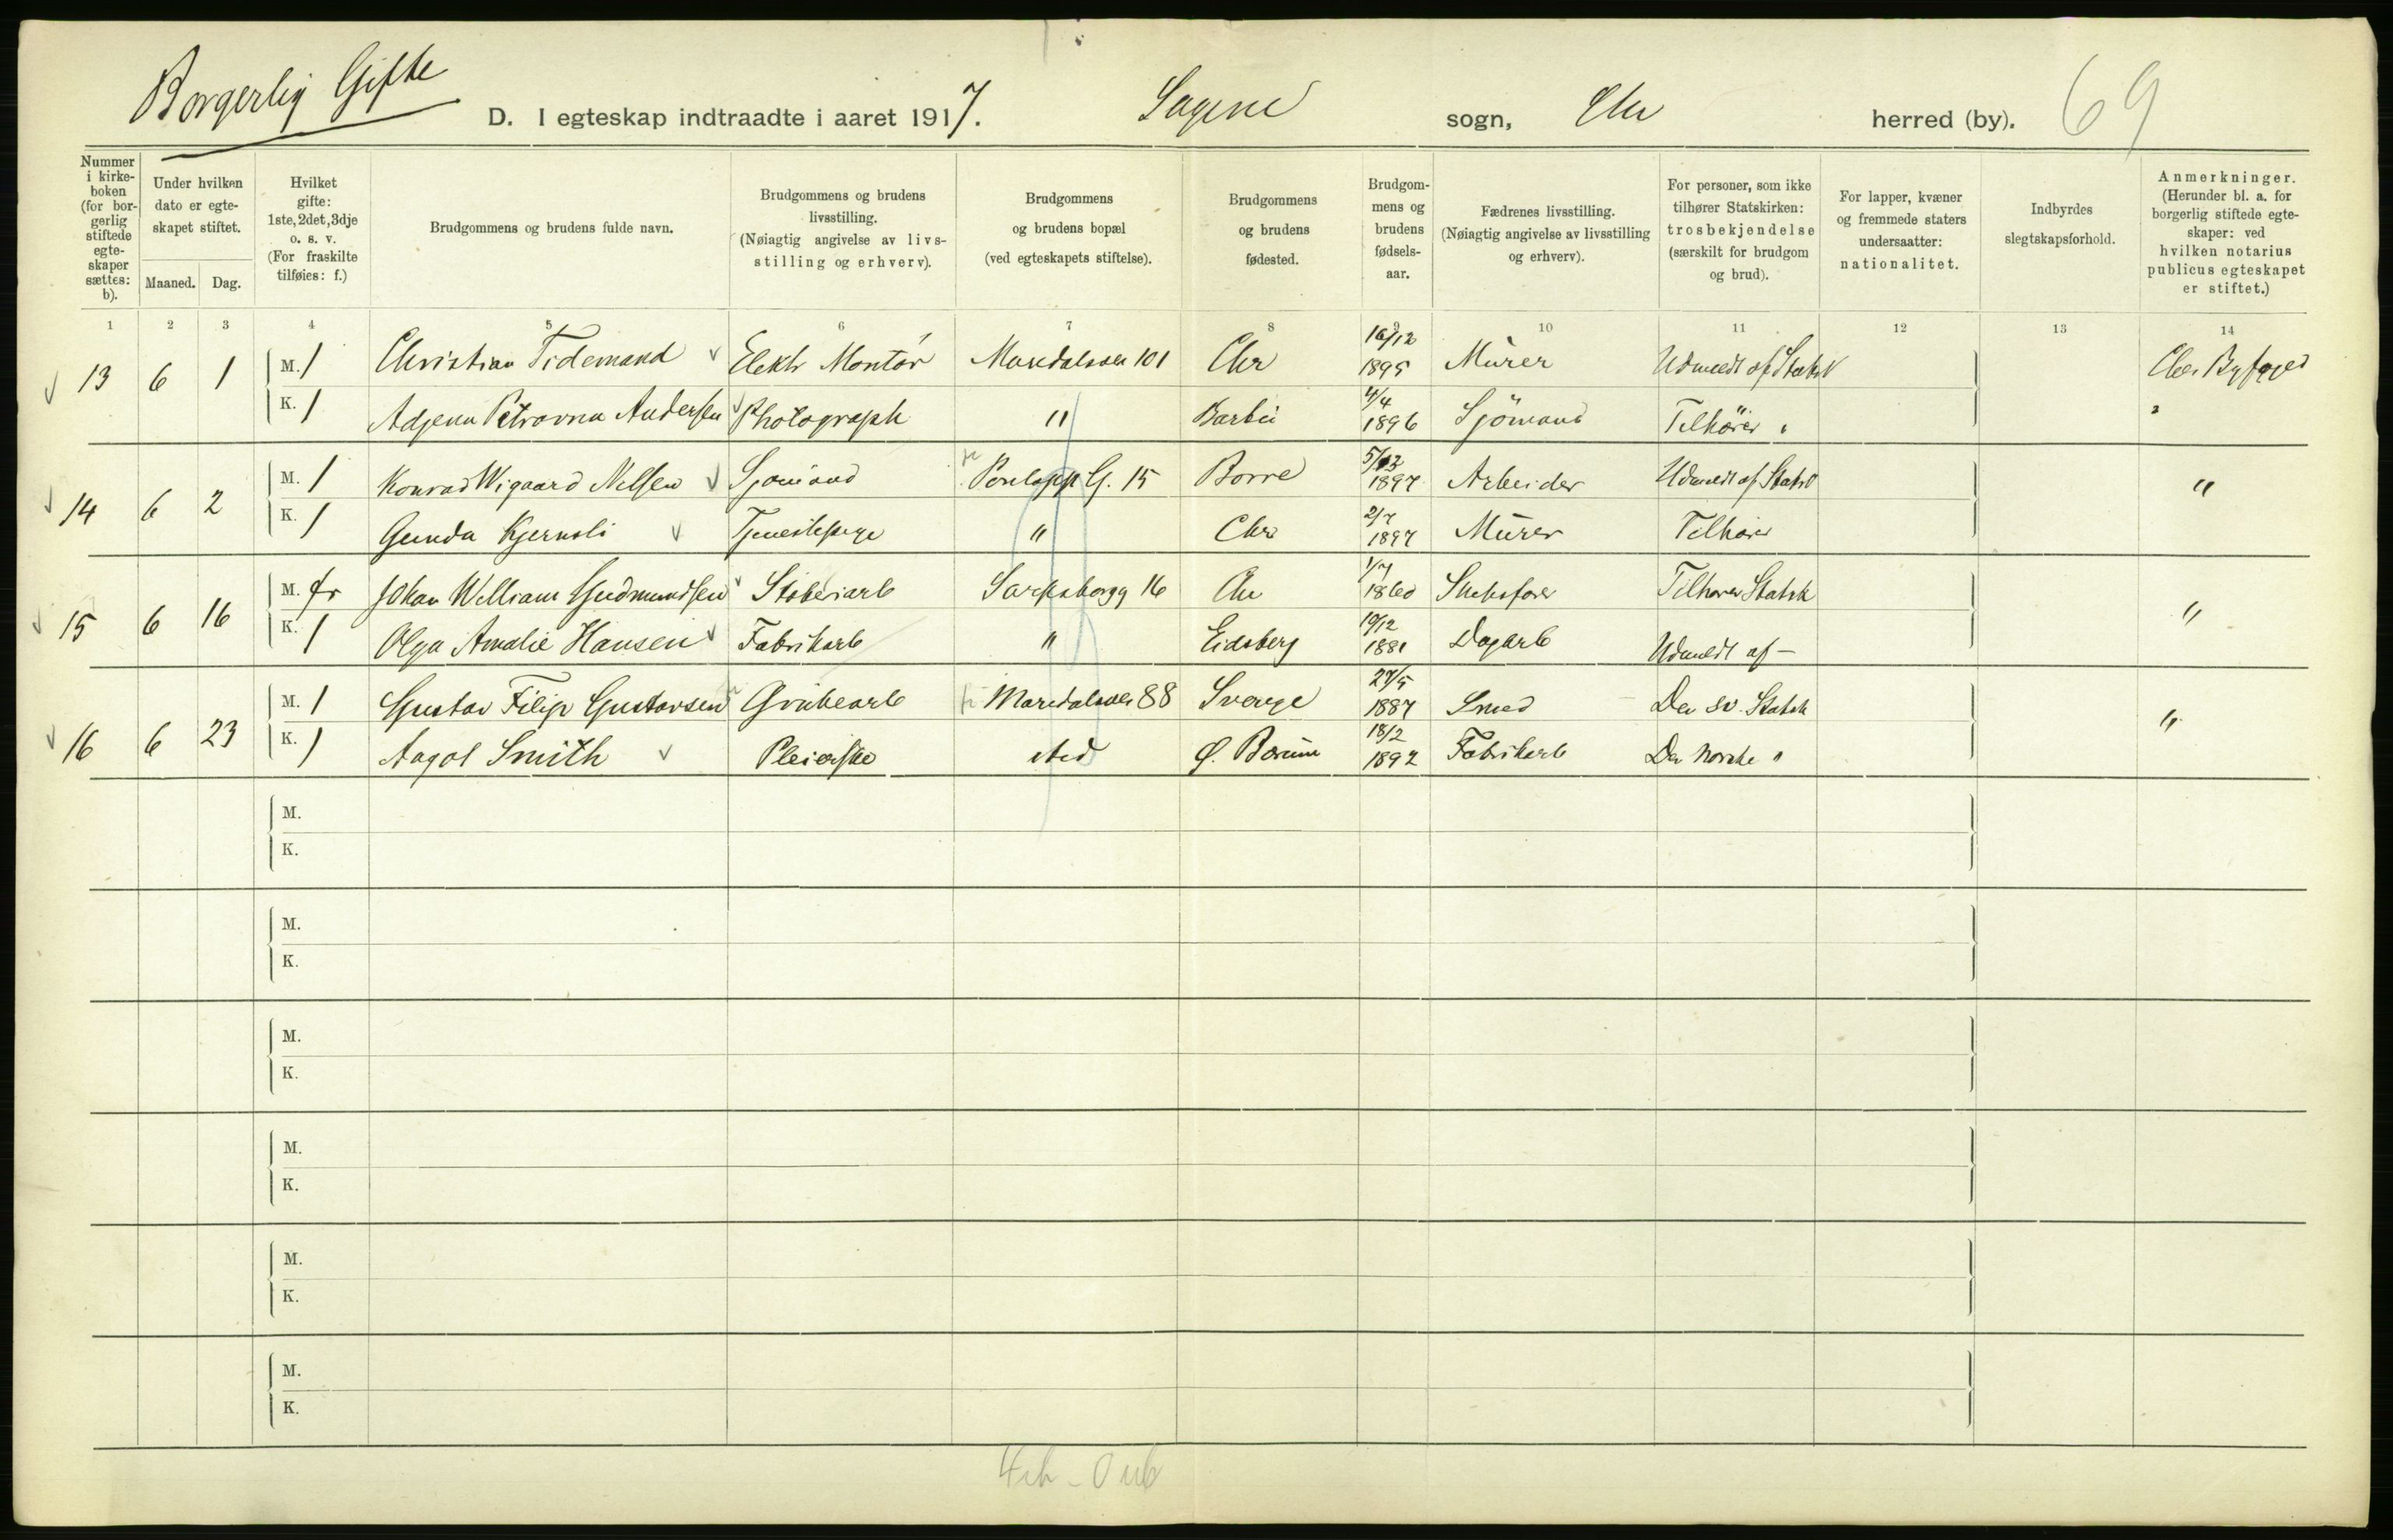 Borgerlig Gifte
D. I egteskap indtraadte i aaret 1917. Sagene sogn, Chr herred (by). 69
Nummer i kirke-boken (for bor-gerlig stiftede egte-skaper sættes: b).
Under hvilken dato er egte-skapet stiftet.
Maaned. Dag.
Hvilket gifte: 1ste, 2det, 3dje o. s. v. (For fraskilte tilføies: f.)
Brudgommens og brudens fulde navn.
Brudgommens og brudens livsstilling. (Nøiagtig angivelse av livs-stilling og erhverv).
Brudgommens og brudens bopæl (ved egteskapets stiftelse).
Brudgommens og brudens fødested.
Brudgom-mens og brudens fødsels-aar.
Fædrenes livsstilling. (Nøiagtig angivelse av livsstilling og erhverv).
For personer, som ikke tilhører Statskirken: trosbekjendelse (særskilt for brudgom og brud).
For lapper, kvæner og fremmede staters undersaatter: nationalitet.
Indbyrdes slegtskapsforhold.
Anmerkninger. (Herunder bl. a. for borgerlig stiftede egte-skaper: ved hvilken notarius publicus egteskapet er stiftet.)
1 2 3 4 5 6 7 8 9 10 11 12 13 14
13 6 1 M. 1 Christian Tidemand Elektr Montör Maridalsvei 101 Chr 16/12 1895 Murer Udmeldt af Statsk Chr. Byfoged
K. 1 Petrovna Andersen Photograph " Barbu 4/4 1896 Sjömand Tilhører "
14 6 2 M. 1 Konrad Wigaard Nilsen Sjømand 15 Borre 1897 Arbeider Udmeldt af Statsk "
K. 1 Gunda Kjernsli Tjenestepige " Chr 2/7 1897 Murer Tilhører
15 6 16 M. fr Johan William Gudmundsen Støberiarb Sarpsborgg 16 Chr 1/7 1860 Tilhører Statsk "
K. 1 Olga Amalie Hansen Fabrikarb " Eidsberg 19/12 1881 Dagarb Udmeldt af —
16 6 23 M. 1 Gustav Filip Gustavsen Grubearb Maridalsvei 88 Sverge 27/5 1887 Smed Den sv. Statsk "
K. 1 Aagot Smith Pleierske sted Ø. Bærum 18/2 1892 Fabrikarb Den norske "
M.
K.
M.
K.
M.
K.
M.
K.
M.
K.
M.
K.